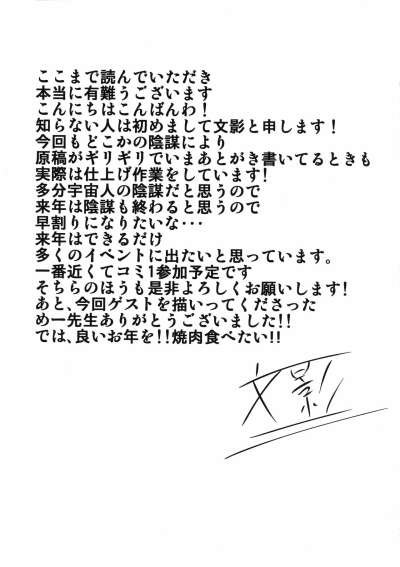 ここまで読んでいただき
本当に有難うございます
こんにちはこんばんわ！
知らない人は初めまして文影と申します！
今回もどこかの陰謀により
原稿がギリギリでいまあとがき書いてるときも
実際は仕上げ作業をしています！
多分宇宙人の陰謀だと思うので
来年は陰謀も終わると思うので
早割りになりたいな･･･
来年はできるだけ
多くのイベントに出たいと思っています。
一番近くてコミ1参加予定です
そちらのほうも是非よろしくお願いします！
あと、今回ゲストを描いってくださった
めー先生ありがとうございました!!
では、良いお年を！！焼肉食べたい!!
文影